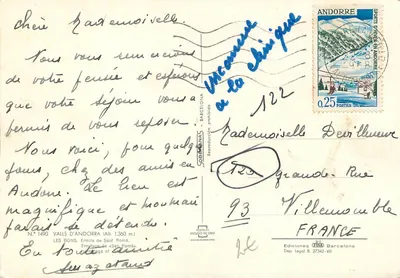 Chère Mademoiselle.
Nous vous remercions
de votre pensée et espérons
que votre séjour vous a
permis de vous reposer.
Nous voici, pour quelques
jours, chez des amis en
Andorre. Le lieu est
magnifique et
parfait se détendre.
En toute amitié
Nº 1490 VALLS D'ANDORRA (Alt. 1.360 m.)
LES BONS. Ermita de Sant Romà.
inconnue
a la clinique
122
ANDORRE
0,25
POSTES
Mademoiselle Devilleneuve
123
Grande-Rue
93 Villemomble
FRANCE
2€
Ediciones Barcelona